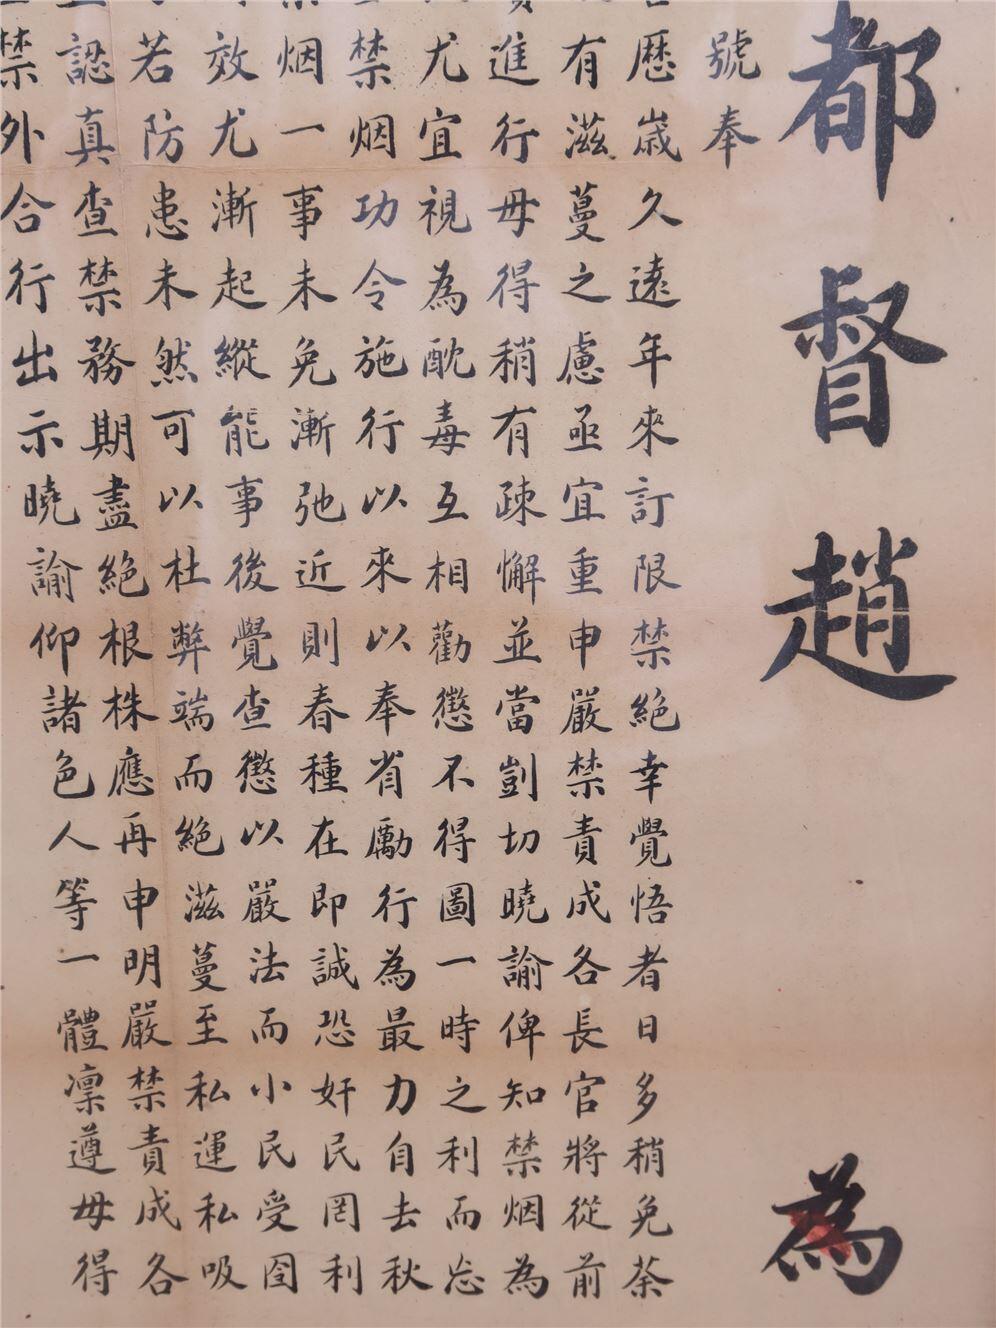 都督趙為
號奉
歷歳久遠年來訂限禁絕幸覺悟者日多稍免荼
有滋蔓之慮亟宜重申嚴禁責成各長官將從前
進行毋得稍有疎懈並當剴切曉諭俾知禁烟為
尤宜視為酖毒互相勸懲不得圖一時之利而忘
禁烟功令施行以來以奉省勵行為最力自去秋
烟一事未免漸弛近則春種在即誠恐奸民罔利
效尤漸起縱能事後覺查懲以嚴法而小民受囹
若防患未然可以杜弊端而絕滋蔓至私運私吸
認真查禁務期盡絕根株應再申明嚴禁責成各
禁外合行出示曉諭仰諸色人等一體凜遵毋得